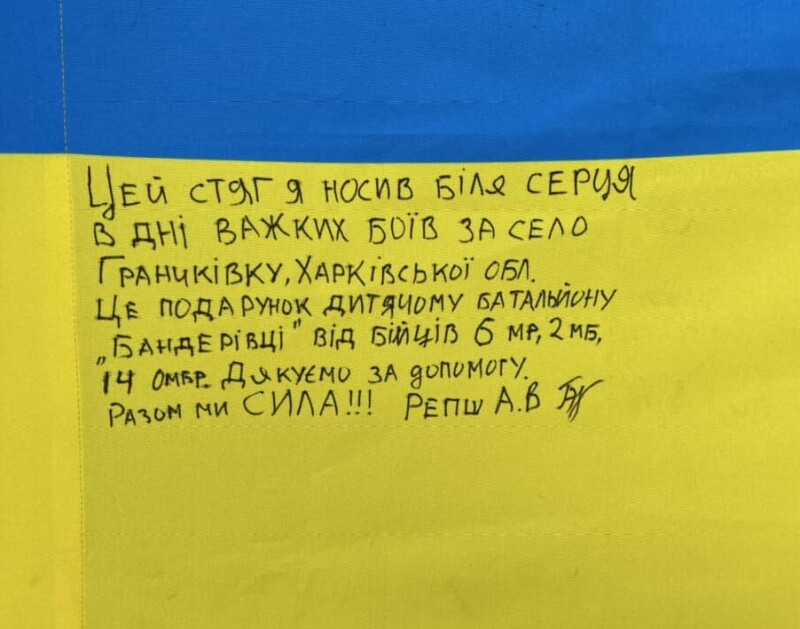 Цей стяг я носив біля серця
в дні важких боїв за село
Граниківку, Харківської обл.
Це подарунок дитячому батальйону
„Бандерівці" від бійців 6 мр, 2 мб,
14 омбр. Дякуємо за допомогу.
Разом ми СИЛА!!! Репш А.В